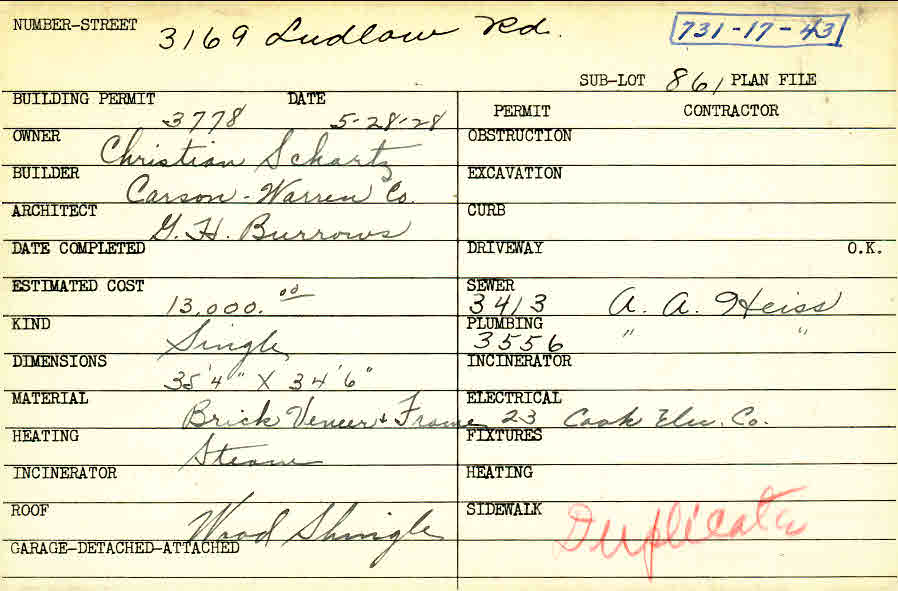 NUMBER-STREET 3169 Ludlow Rd. 731-17-43
SUB-LOT 861 PLAN FILE
BUILDING PERMIT DATE
3778 5-28-28
PERMIT CONTRACTOR
OWNER Christian Schartz
OBSTRUCTION
BUILDER Carson-Warren Co.
EXCAVATION
ARCHITECT G. H. Burrows
CURB
DATE COMPLETED
DRIVEWAY O.K.
ESTIMATED COST 13,000.00
SEWER 3413 A. A. Heiss
KIND Single
PLUMBING 3556 " "
DIMENSIONS 35'4" X 34'6"
INCINERATOR
MATERIAL Brick Veneer & Frame
ELECTRICAL 23 Cook Elec. Co.
HEATING Steam
FIXTURES
INCINERATOR
HEATING
ROOF Wood Shingle
SIDEWALK
Duplicate
GARAGE-DETACHED-ATTACHED